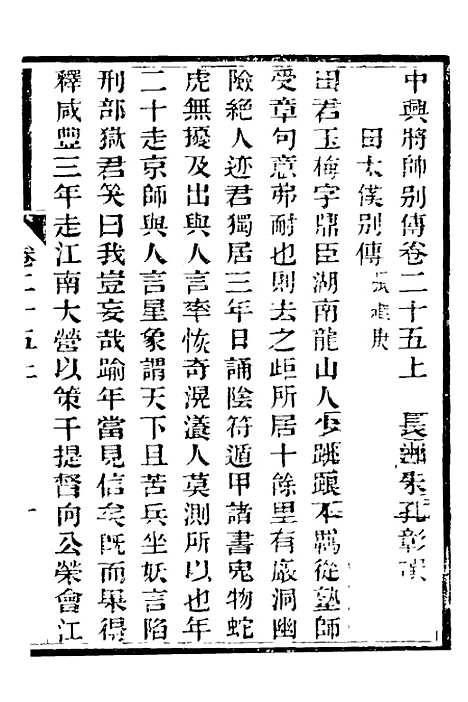 中興將帥別傳卷二十五上　長洲朱孔彰撰
田太僕別傳
田君玉梅字鼎臣湖南龍山人少跳踉不羈從塾師
受章句意弗耐也則去之距所居十餘里有巖洞幽
險絕人迹君獨居三年日誦陰符遁甲諸書鬼物蛇
虎無擾及出與人言率恢奇滉瀁人莫測所以也年
二十走京師與人言星象謂天下且苦兵坐妖言陷
刑部獄君笑曰我豈妄哉踰年當見信矣旣而果得
釋咸豐三年走江南大營以策干提督向公榮會江
卷二十五上